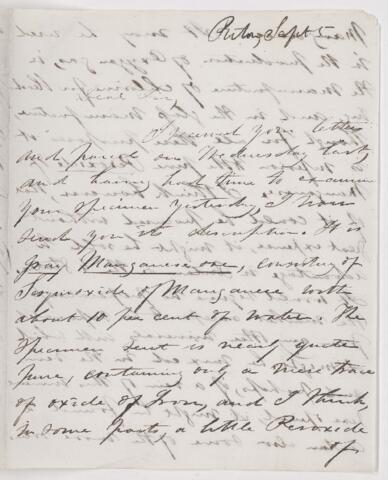 Pictou Sept 5
Dear Sir,
I received your letter
and parcel on Wednesday last,
and having had time to examine
your specimen yesterday, I now
send you its description. It is
gray Manganese ore, consisting of
Sesquioxide of Manganese with
about 10 per cent of water. The
specimen sent is nearly quite
pure, containing only a mere trace
of oxide of Iron, and I think,
in some parts, a little Peroxide
of